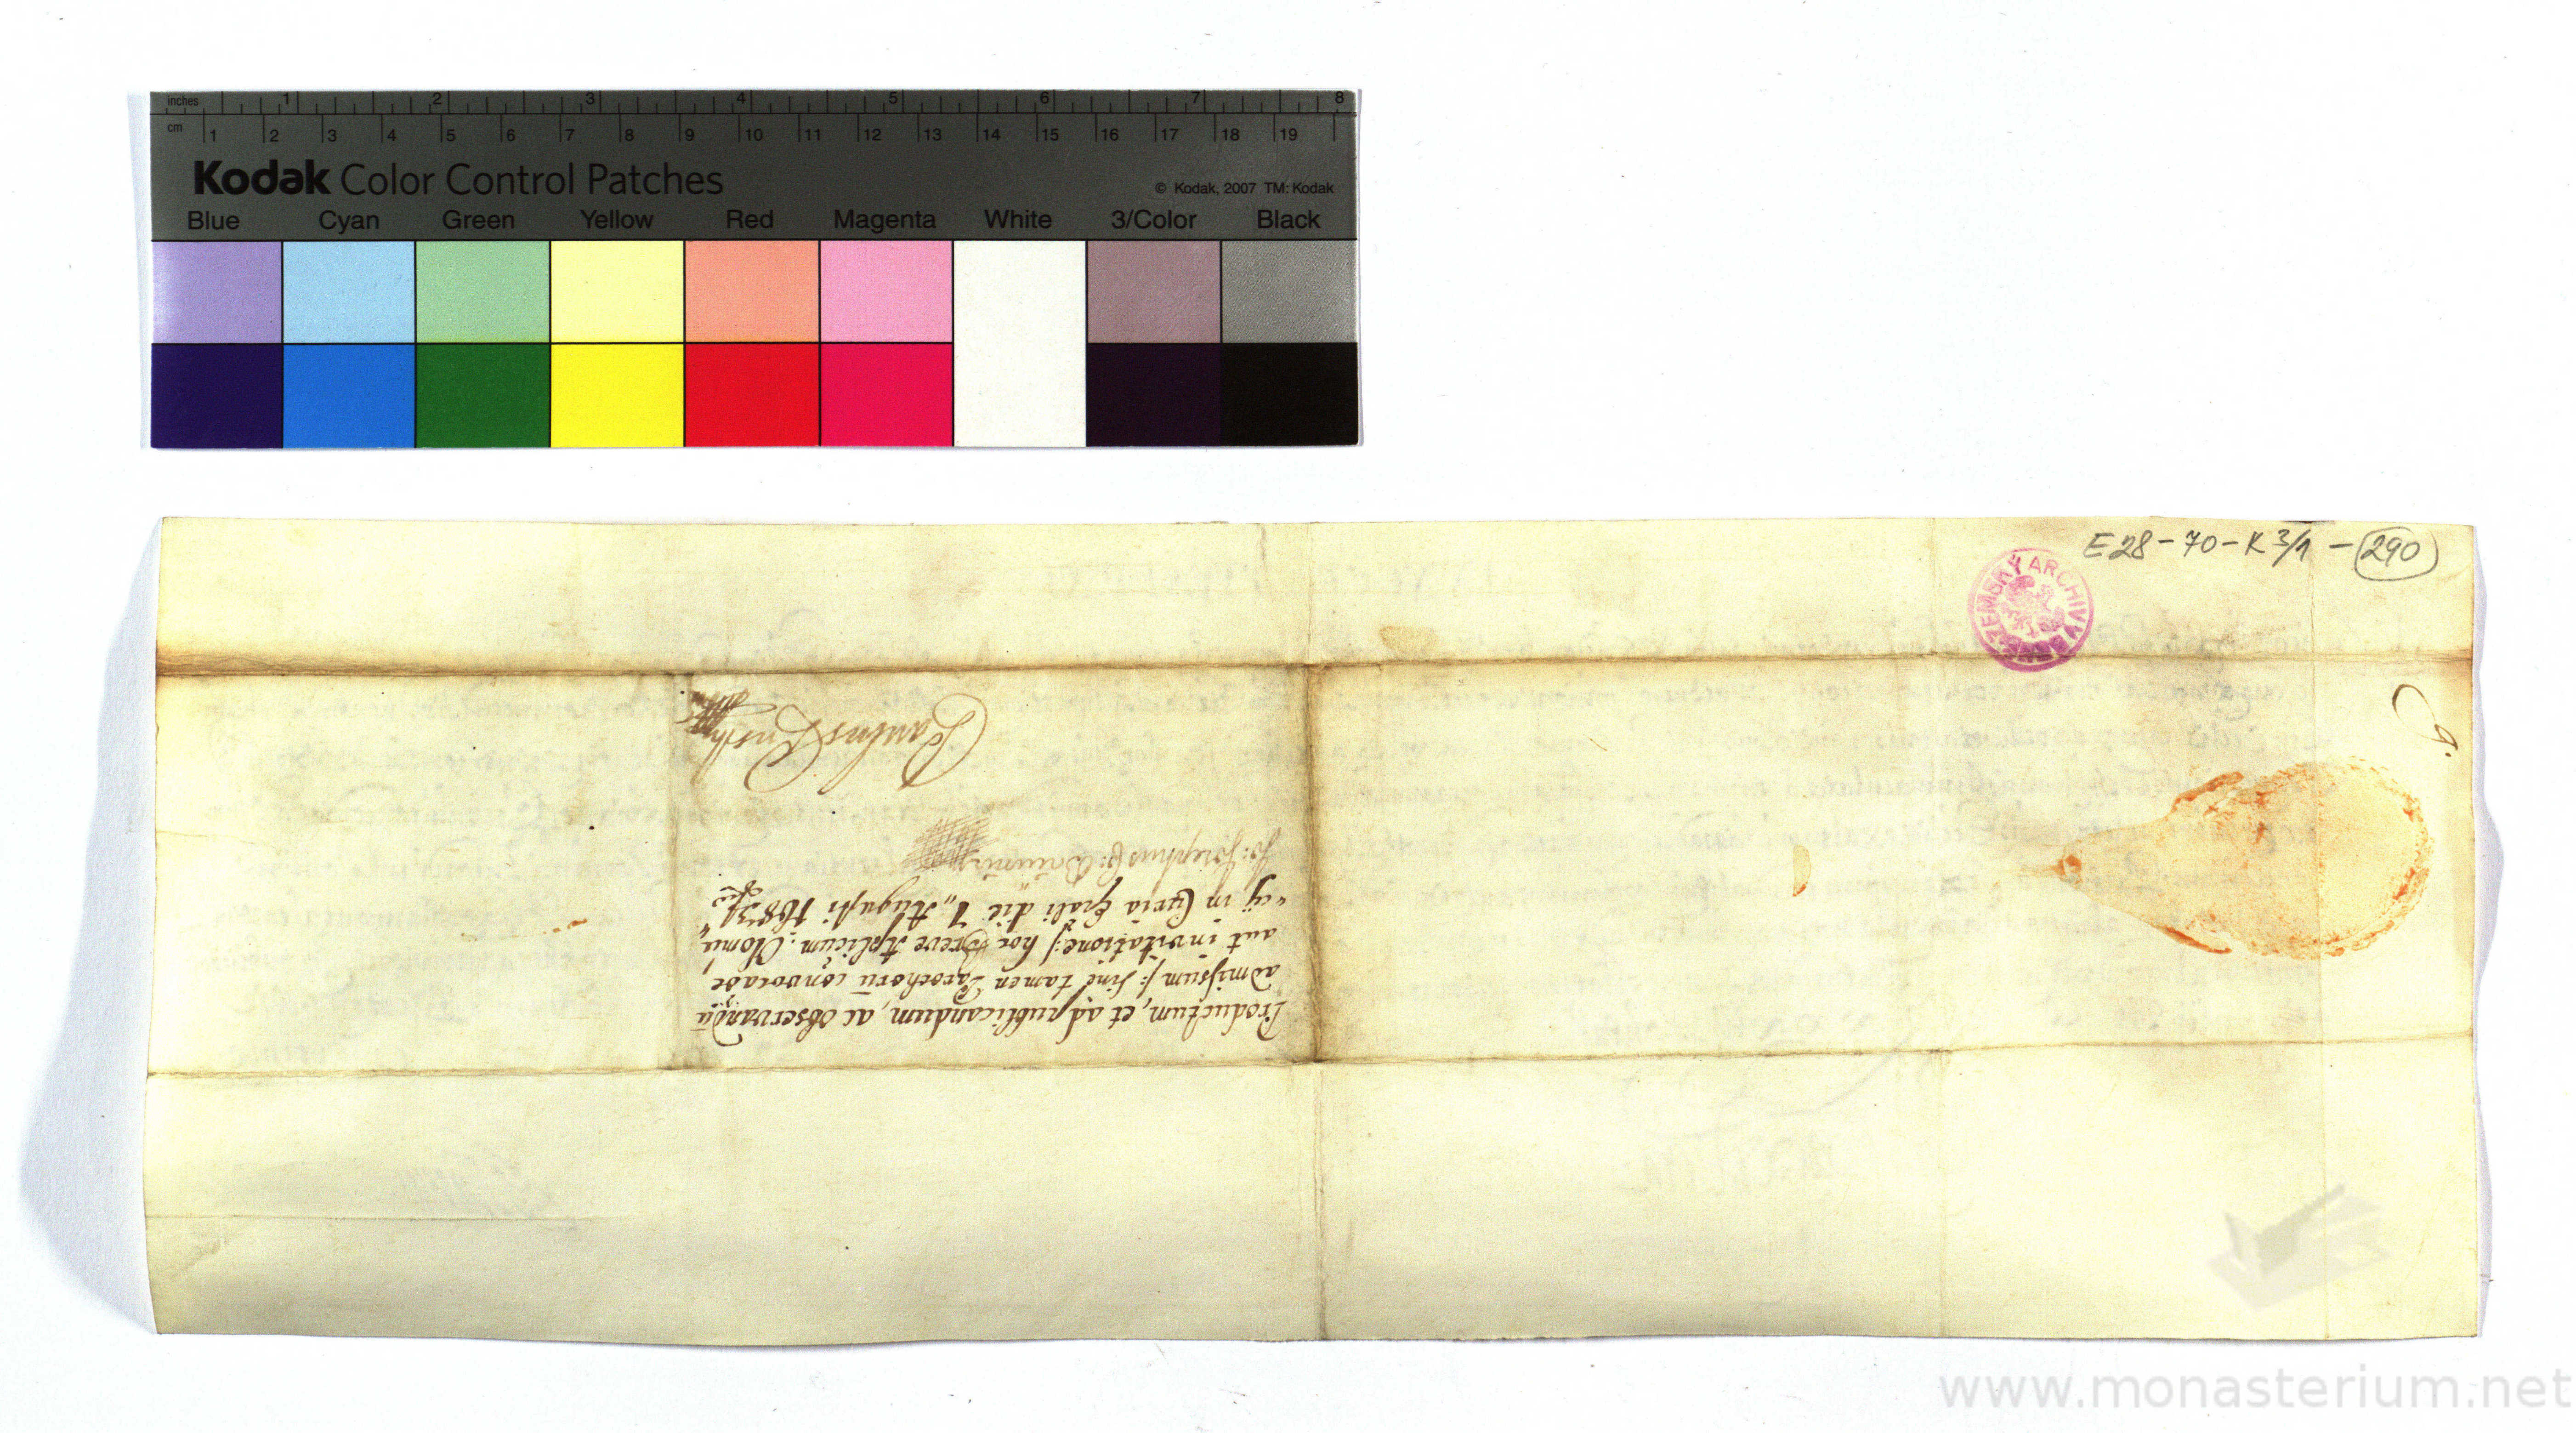 inches 1 2 3 4 5 6 7 8
cm 1 2 3 4 5 6 7 8 9 10 11 12 13 14 15 16 17 18 19
Kodak Color Control Patches
© Kodak, 2007 TM: Kodak
Blue Cyan Green Yellow Red Magenta White 3/Color Black
E 28 - 70 - K 3/1 - 290
ZEMSKÝ ARCHIV V BRNĚ
Productum, et ad publicandum, ac observandū
admissum /: sine tamen Parochorū convocaōe
aut invitatione :/ hoc Breve Aplicum. Olomu
cij in Curia Eṗali die 7 Augusti 1683
Jo: Josephus
Paulus
www.monasterium.net